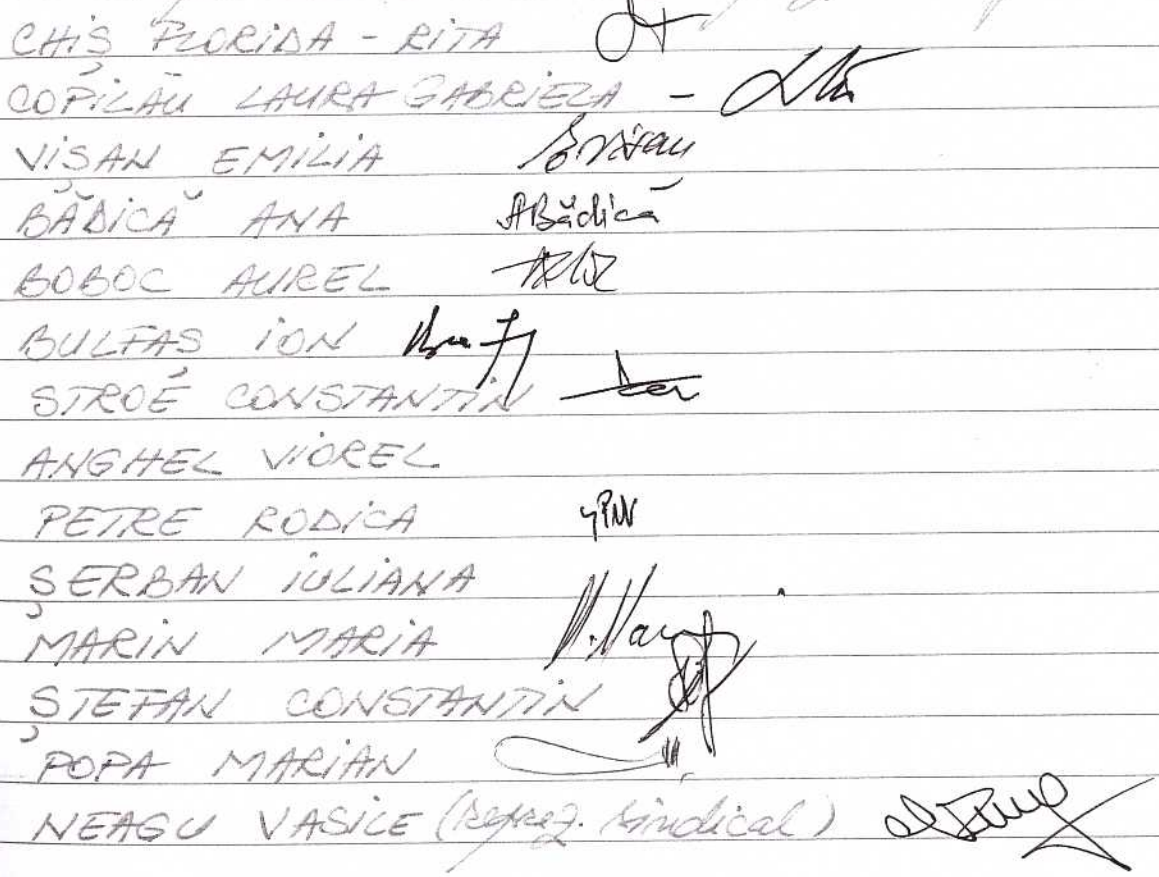 CHIȘ FLORIDA - RITA
COPILĂU LAURA GABRIELA -
VIȘAN EMILIA EVișan
BĂDICĂ ANA ABădică
BOBOC AUREL
BULFAS ION
STROE CONSTANTIN
ANGHEL VIOREL
PETRE RODICA
ȘERBAN IULIANA
MARIN MARIA
ȘTEFAN CONSTANTIN
POPA MARIAN
NEAGU VASILE (reprez. sindical)